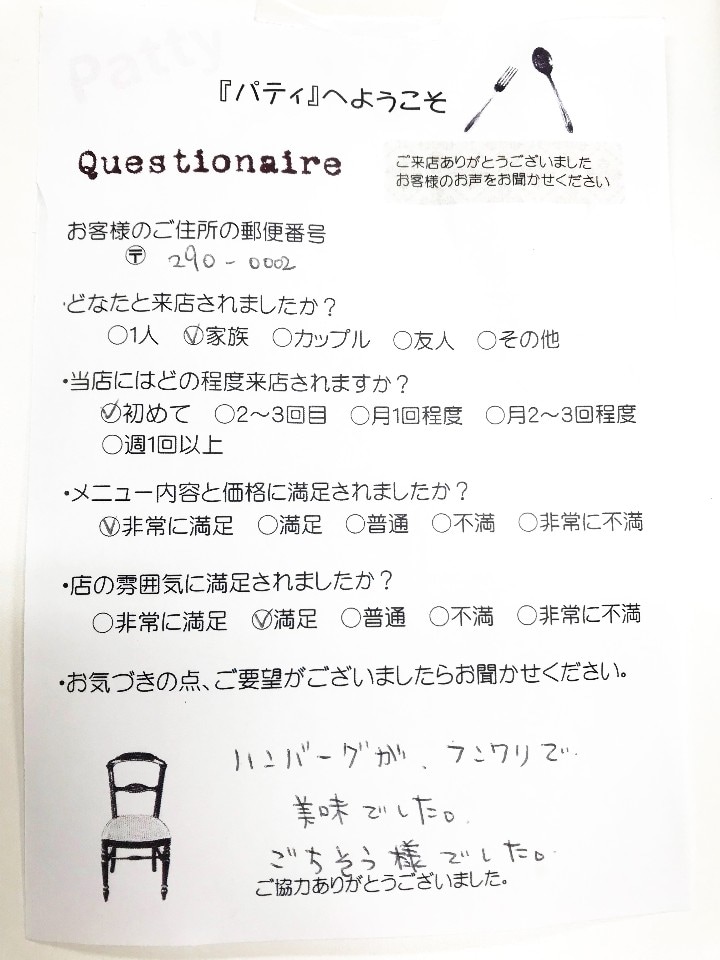 Patty
『パティ』へようこそ
Questionaire
ご来店ありがとうございました
お客様のお声をお聞かせください
お客様のご住所の郵便番号
〒 290-0002
・どなたと来店されましたか？
○1人 ✓家族 ○カップル ○友人 ○その他
・当店にはどの程度来店されますか？
✓初めて ○2～3回目 ○月1回程度 ○月2～3回程度
○週1回以上
・メニュー内容と価格に満足されましたか？
✓非常に満足 ○満足 ○普通 ○不満 ○非常に不満
・店の雰囲気に満足されましたか？
○非常に満足 ✓満足 ○普通 ○不満 ○非常に不満
・お気づきの点、ご要望がございましたらお聞かせください。
ハンバーグが、フンワリで
美味でした。
ごちそう様でした。
ご協力ありがとうございました。